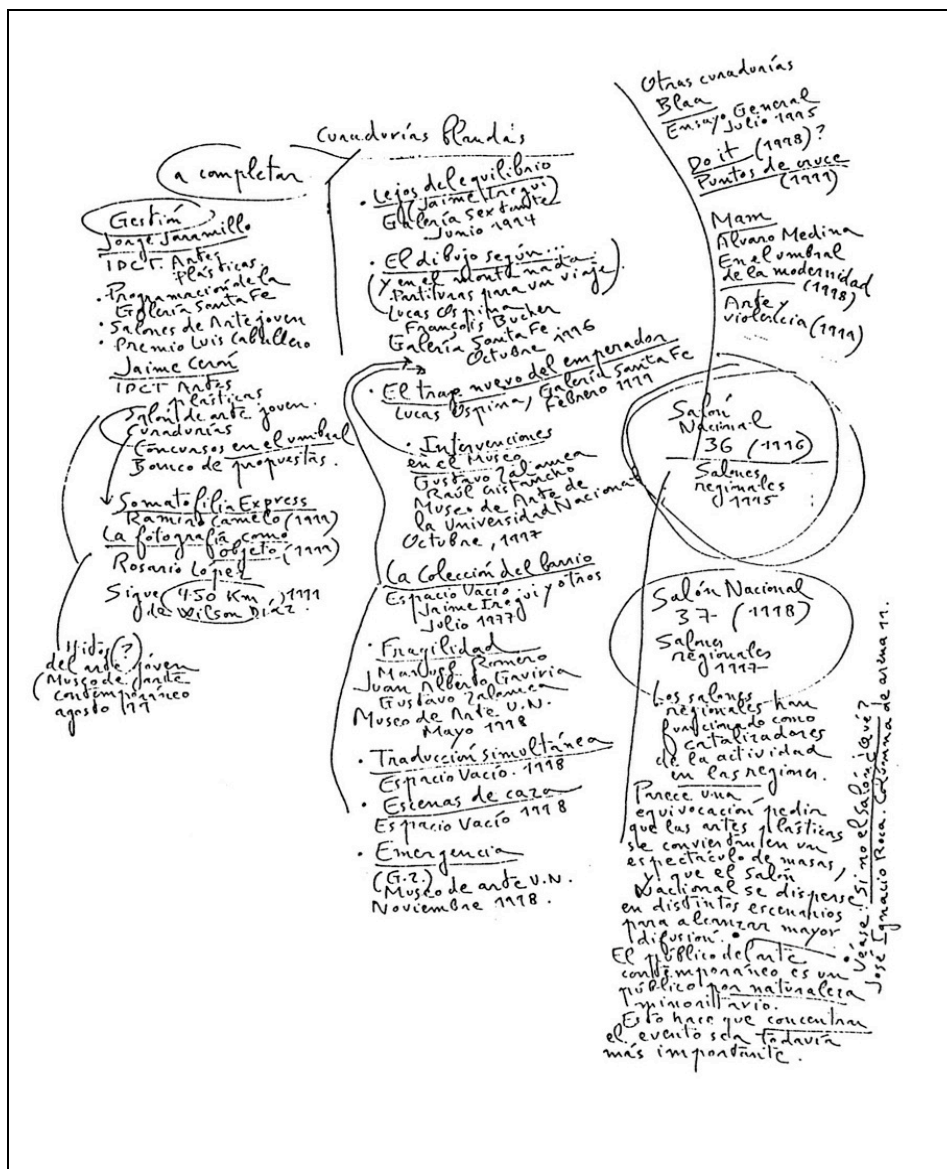 Curadurías blandas
a completar
Gestión
Jorge Jaramillo
IDCT. Artes
Plásticas.
• Programación de la
Galería Santa Fe
• Salones de Arte joven
• Premio Luis Caballero
Jaime Cerón
IDCT Artes
plásticas
Salón de arte joven.
Curadurías
Concursos en el umbral
Banco de propuestas.
Somatofilia Express
Ramiro Camelo (1999)
La fotografía como
objeto (1999)
Rosario López
Sigue (950 Km.) 1999
de Wilson Díaz
(?)
del arte joven
(Museo de arte
contemporáneo
agosto 99
• Lejos del equilibrio
(Jaime Iregui)
Galería Sextante
Junio 1994
• El dibujo según...
(y en el monte nada...
Partituras para un viaje).
Lucas Ospina
François Bucher
Galería Santa Fe
Octubre 1996
• El traje nuevo del emperador
Lucas Ospina, Galería Santa Fe
Febrero 1999
• Intervenciones
en el Museo
Gustavo Zalamea
Raúl Cristancho
Museo de Arte de
la Universidad Nacional
Octubre, 1997
• La Colección del barrio
Espacio Vacío
Jaime Iregui y otros
Julio 1977
• Fragilidad
Romero
Juan Alberto Gaviria
Gustavo Zalamea
Museo de Arte U.N.
Mayo 1998
• Traducción simultánea
Espacio Vacío. 1998
• Escenas de caza
Espacio Vacío 1998
• Emergencia
(G.2.)
Museo de arte U.N.
Noviembre 1998.
Otras curadurías
Blaa
Ensayo General
Julio 1995
Do it (1998)?
Puntos de cruce
(1999)
Mam
Álvaro Medina
En el umbral
de la modernidad
(1998)
Arte y
violencia (1999)
Salón
Nacional
36 (1996)
Salones
regionales
1995
Salón Nacional
37- (1998)
Salones
regionales
1997-
Los salones
regionales han
funcionado como
catalizadores
de la actividad
en las regiones.
Parece una
equivocación pedir
que las artes plásticas
se conviertan en un
espectáculo de masas,
y que el Salón
Nacional se disperse
en distintos escenarios
para alcanzar mayor
difusión. •
El público del arte
contemporáneo es un
público por naturaleza
minoritario.
Esto hace que concentrar
el evento sea todavía
más importante.
• Véase: Si no el Salón ¿Qué?
José Ignacio Roca. Columna de arena 11.